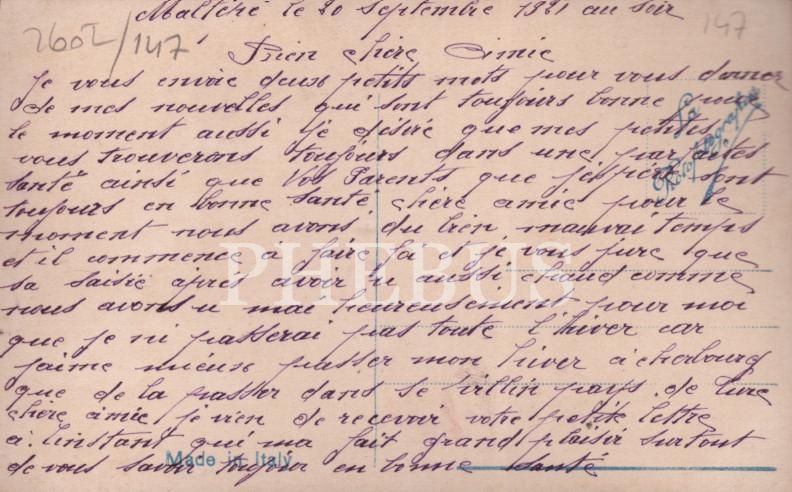 Maltéré le 20 septembre 1921 au soir
2602/147
147
Bien chère Amie
Je vous envoie deux petits mots pour vous donner
de mes nouvelles qui sont toujours bonne pour
le moment aussi je désire que mes petites
vous trouverons toujours dans une parfaites
santé ainsi que Vos Parents que j'espère sont
toujours en bonne santé chère amie pour le
moment nous avons du bien mauvai temps
et il commence a faire froi et je vous jure que
sa saisie après avoir u aussi chaud comme
nous avons u mai heureusement pour moi
que je ni passerai pas toute l'hiver car
j'aime mieuse passer mon hiver à cherbourg
que de la passer dans se villin pays de Turc
chère amie je vien de recevoir votre petite lettre
à l'instant qui ma fait grand plaisir surtout
de vous savoir toujour en bonne santé
La Photographie
Made in Italy
PHEBUS